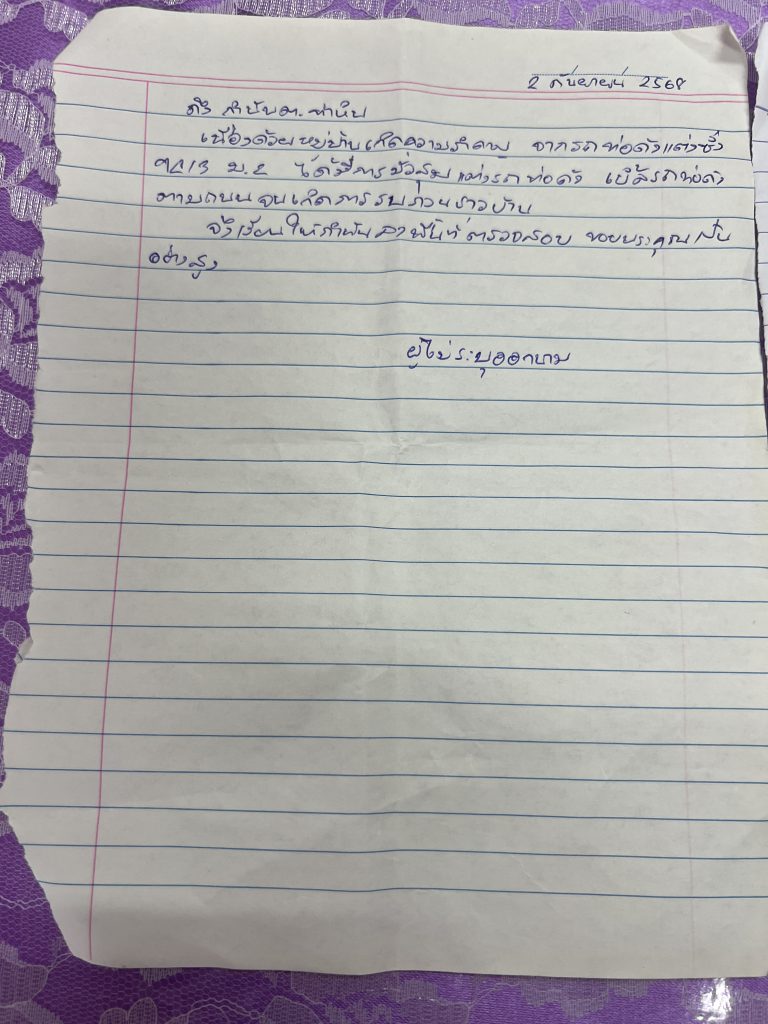 2 กันยายน 2568
ถึง กำนันต.ท่าหิน
เนื่องด้วยหมู่บ้านเกิดความรำคาญ จากรถท่อดังแต่งซิ่ง
ม.2 ได้มีการมั่วสุม แต่งรถท่อดัง เบิ้ลรถท่อดัง
ตามถนน จนเกิดการรบกวนชาวบ้าน
จึงเรียนให้กำนันลงพื้นที่ตรวจสอบ ขอบพระคุณเป็น
อย่างสูง
ผู้ไม่ระบุออกนาม